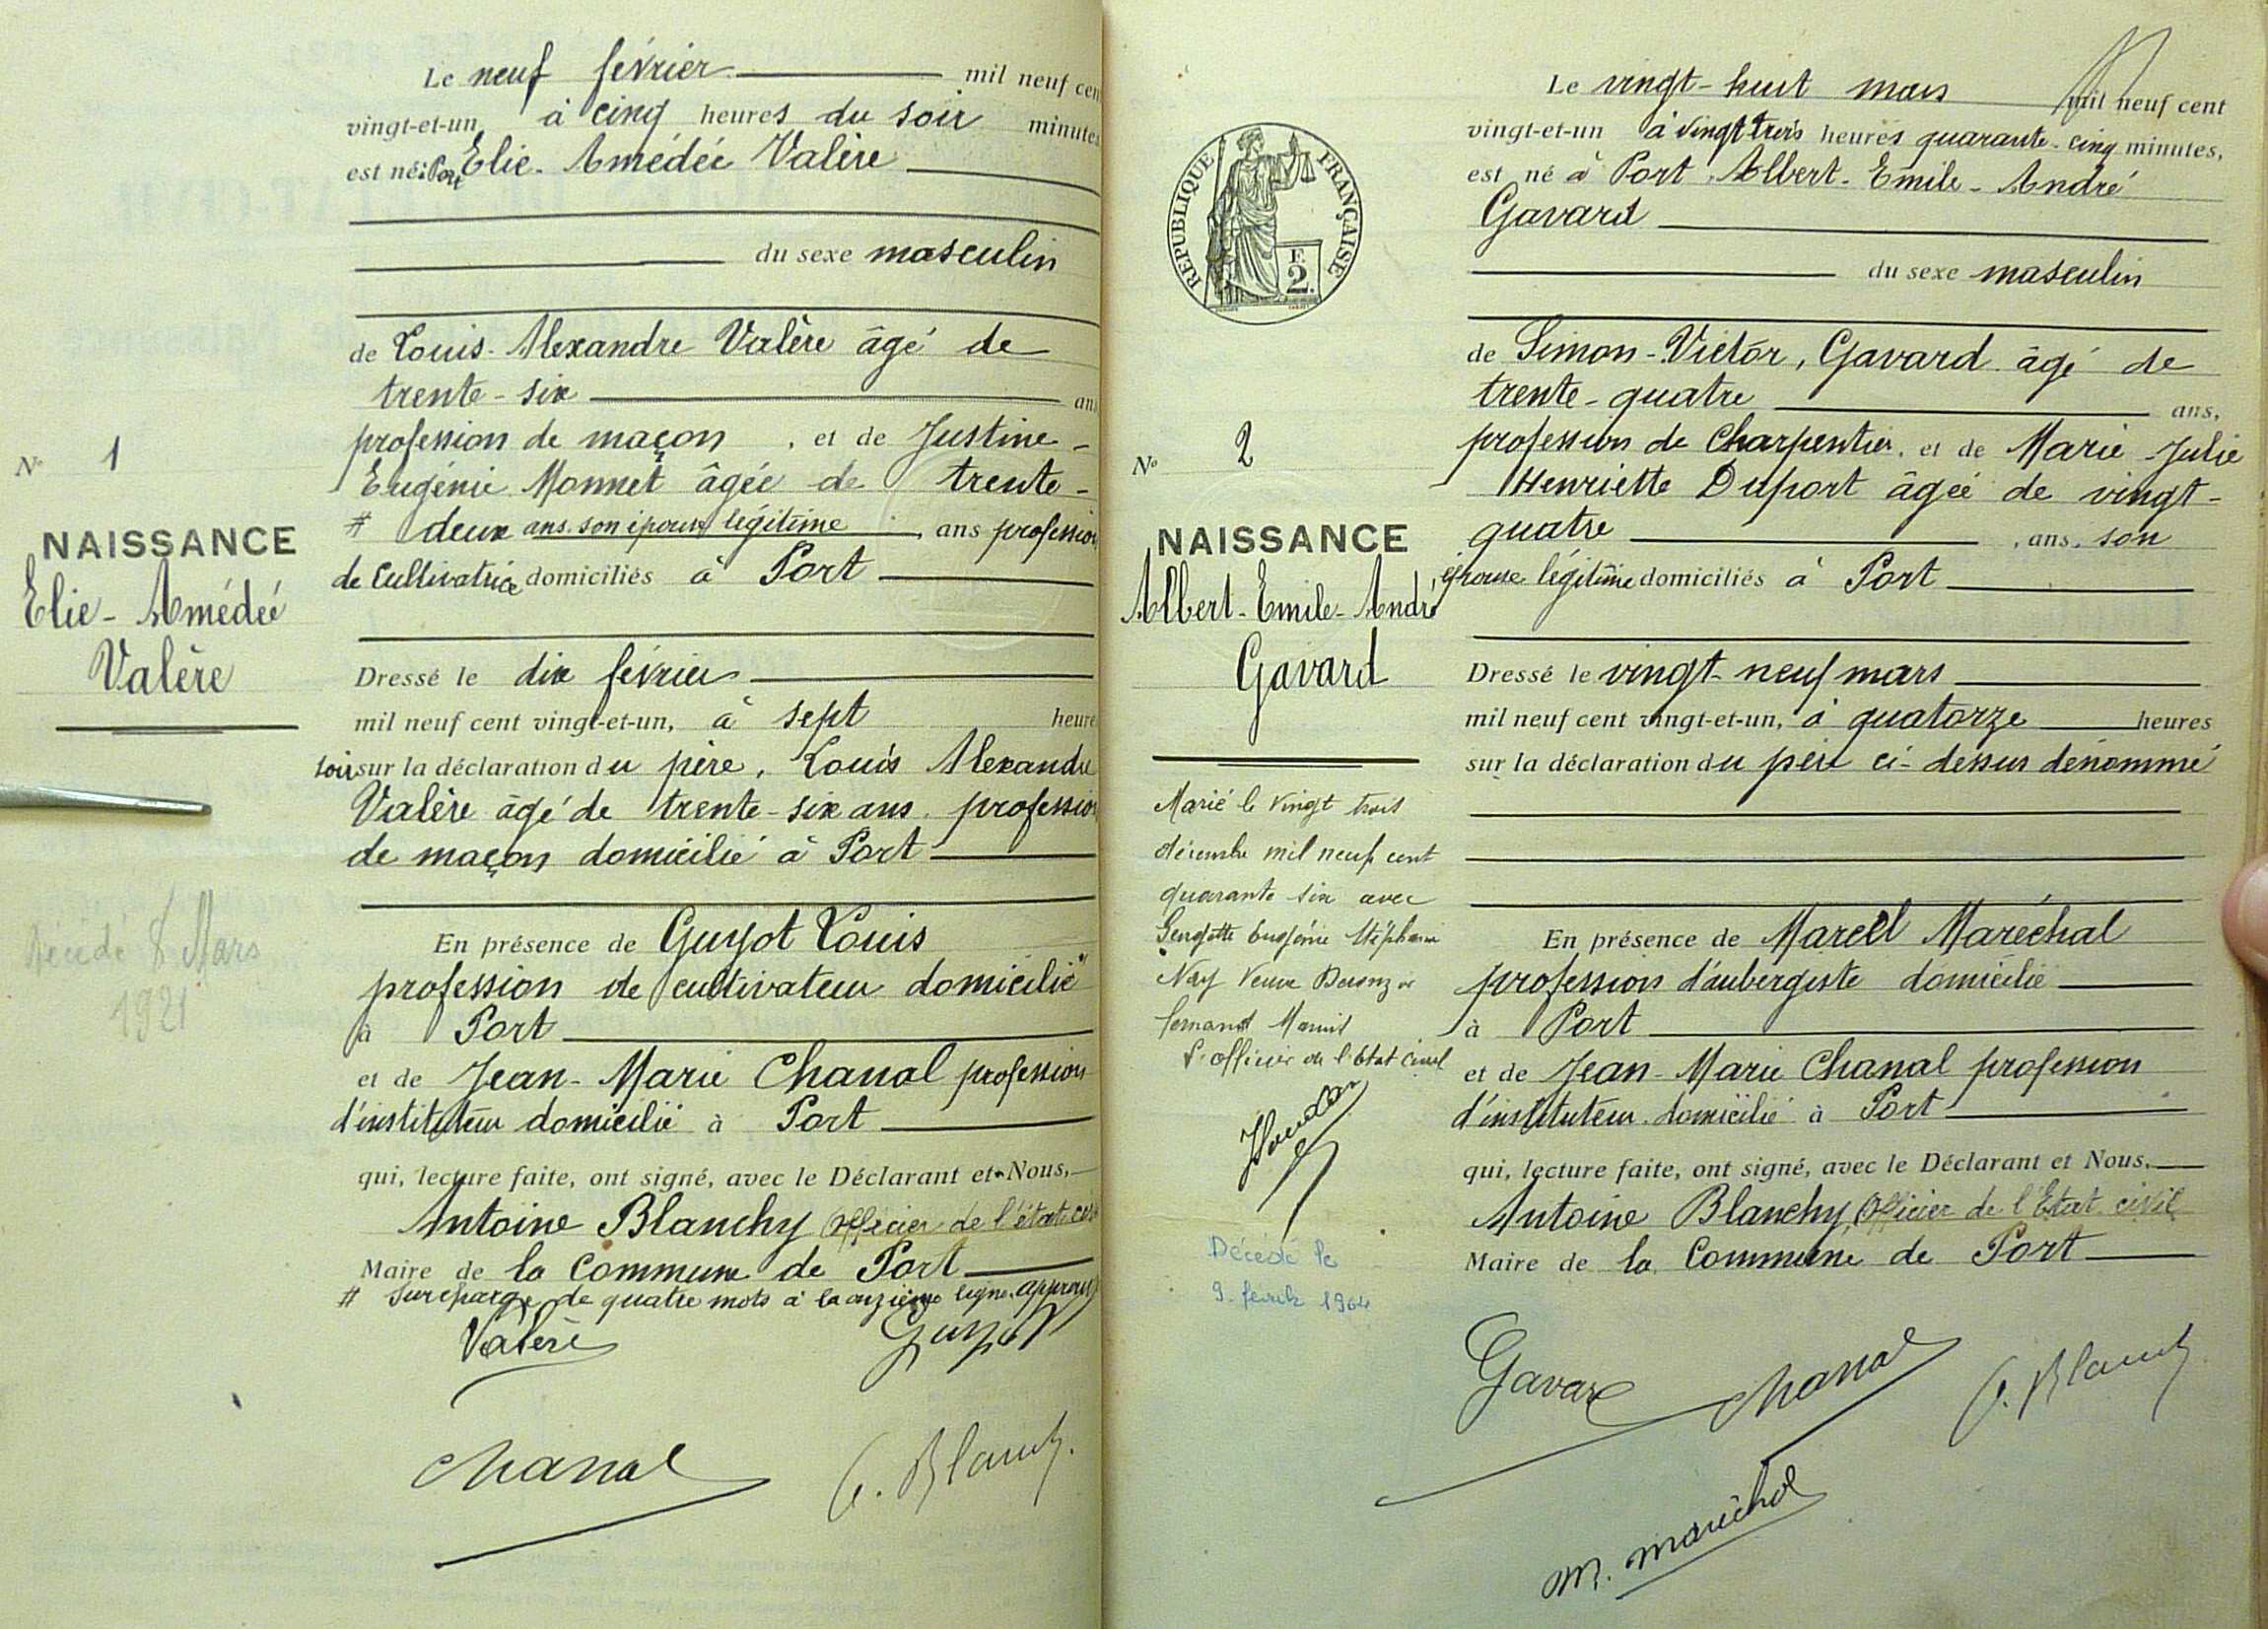 Le neuf février mil neuf cen
vingt-et-un à cinq heures du soir minutes
est né à Port Elie-Amédée Valère
du sexe masculin
de Louis-Alexandre Valère âgé de
trente-six ans
profession de maçon, et de Justine-
Eugénie Monnet âgée de trente-
# deux ans. son épouse légitime, ans profession
de cultivatrice domiciliés à Port
N° 1
NAISSANCE
Elie-Amédée
Valère
Dressé le dix février
mil neuf cent vingt-et-un, à sept heure
soir sur la déclaration du père, Louis Alexandre
Valère âgé de trente-six ans. profession
de maçon domicilié à Port
Décédé 8 Mars
1921
En présence de Guyot Louis
profession de cultivateur domicilié
à Port
et de Jean-Marie Chanal profession
d'instituteur domicilié à Port
qui, lecture faite, ont signé, avec le Déclarant et Nous,
Antoine Blanchy officier de l'état civil
Maire de la Commune de Port
# Surcharge de quatre mots à la onzième ligne. approuvé
Valère Guyot
Chanal A. Blanchy
Le vingt-huit mars mil neuf cent
vingt-et-un à vingt trois heures quarante-cinq minutes,
est né à Port, Albert-Emile-André
Gavard
du sexe masculin
REPUBLIQUE FRANÇAISE
F
2.
de Simon-Victor, Gavard âgé de
trente-quatre ans,
profession de Charpentier, et de Marie Julie
Henriette Duport âgée de vingt-
quatre, ans, son
épouse légitime domiciliés à Port
N° 2
NAISSANCE
Albert-Emile-André
Gavard
Dressé le vingt-neuf mars
mil neuf cent vingt-et-un, à quatorze heures
sur la déclaration du père ci-dessus dénommé
Marié le vingt trois
décembre mil neuf cent
quarante six avec
Eugénie Stéphanie
Nay Veuve
L'officier de l'Etat Civil
Décédé le
9 février 1964
En présence de Marcel Maréchal
profession d'aubergiste domicilié
à Port
et de Jean-Marie Chanal profession
d'instituteur domicilié à Port
qui, lecture faite, ont signé, avec le Déclarant et Nous,
Antoine Blanchy, Officier de l'Etat civil
Maire de la Commune de Port
Gavard Chanal A. Blanchy
M. Maréchal